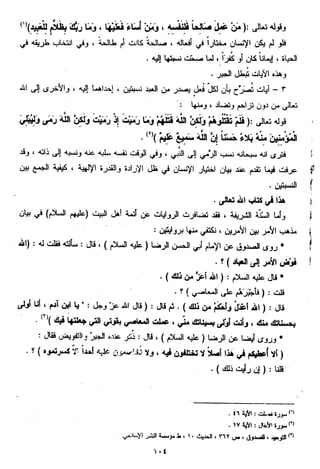 وقوله تعالى : (مَنْ عَمِلَ صَالِحاً فَلِنَفْسِهِ ، وَمَنْ أَسَاءَ فَعَلَيْهَا ، وَمَا رَبُّكَ بِظَلاَّمٍ لِلْعَبِيدِ)(١)
فلو لم يكن الإنسان مختاراً في أفعاله ، صالحة كانت أم طالحة ، وفي انتخاب طريقه في
الحياة ، إيماناً كان أو كفراً ، لما صحت نسبتها إليه .
وهذه الآيات تبطل الجبر .
٣ - آيات تصرّح بأن لكل فعل يصدر من العبد نسبتين ، إحداهما إليه ، والأخرى إلى الله
تعالى من دون تزاحم وتضاد ، ومنها :
قوله تعالى : (فَلَمْ تَقْتُلُوهُمْ وَلَكِنَّ اللَّهَ قَتَلَهُمْ وَمَا رَمَيْتَ إِذْ رَمَيْتَ وَلَكِنَّ اللَّهَ رَمَى وَلِيُبْلِيَ
الْمُؤْمِنِينَ مِنْهُ بَلاَءً حَسَناً إِنَّ اللَّهَ سَمِيعٌ عَلِيمٌ)(٢) .
فترى أنه سبحانه نسب الرمي إلى النبي ، وفي الوقت نفسه سلبه عنه ونسبه إلى ذاته ، وقد
عرفت فيما تقدم عند بيان اختيار الإنسان في ظل الإرادة والقدرة الإلهية ، كيفية الجمع بين
النسبتين .
هذا في كتاب الله تعالى .
وأما السنّة الشريفة ، فقد تضافرت الروايات عن أئمة أهل البيت (عليهم السلام) في بيان
مذهب الأمر بين الأمرين ، نكتفي منها بروايتين :
* روى الصدوق عن الإمام أبي الحسن الرضا ( عليه السلام ) ، قال : سألته فقلت له : (الله
فوّض الأمر إلى العباد ) ؟ .
قال عليه السلام : ( الله أعزّ من ذلك ) .
قلت : ( فأجبرهم على المعاصي ) ؟ .
قال : ( الله أعدل وأحكم من ذلك ) . ثم قال : ( قال الله عزّ وجل : " يا ابن آدم ، أنا أولى
بحسناتك منك ، وأنت أولى بسيئاتك مني ، عملت المعاصي بقوّتي التي جعلتها فيك )(٣) .
* وروى أيضاً عن الرضا ( عليه السلام ) ، قال : ذكر عنده الجبر والتفويض فقال :
( ألا أعطيكم في هذا أصلاً لا تختلفون فيه ، ولا تخاصمون عليه أحداً إلاّ كسرتموه ) ؟ .
قلنا : ( إن رأيت ذلك ) .
(١) سورة فصلت : الآية ٤٦ .
(٢) سورة الأنفال : الآية ١٧ .
(٣) التوحيد ، للصدوق ، ص ٣٦٢ ، الحديث ١٠ ، ط مؤسسة النشر الإسلامي
١٠٤